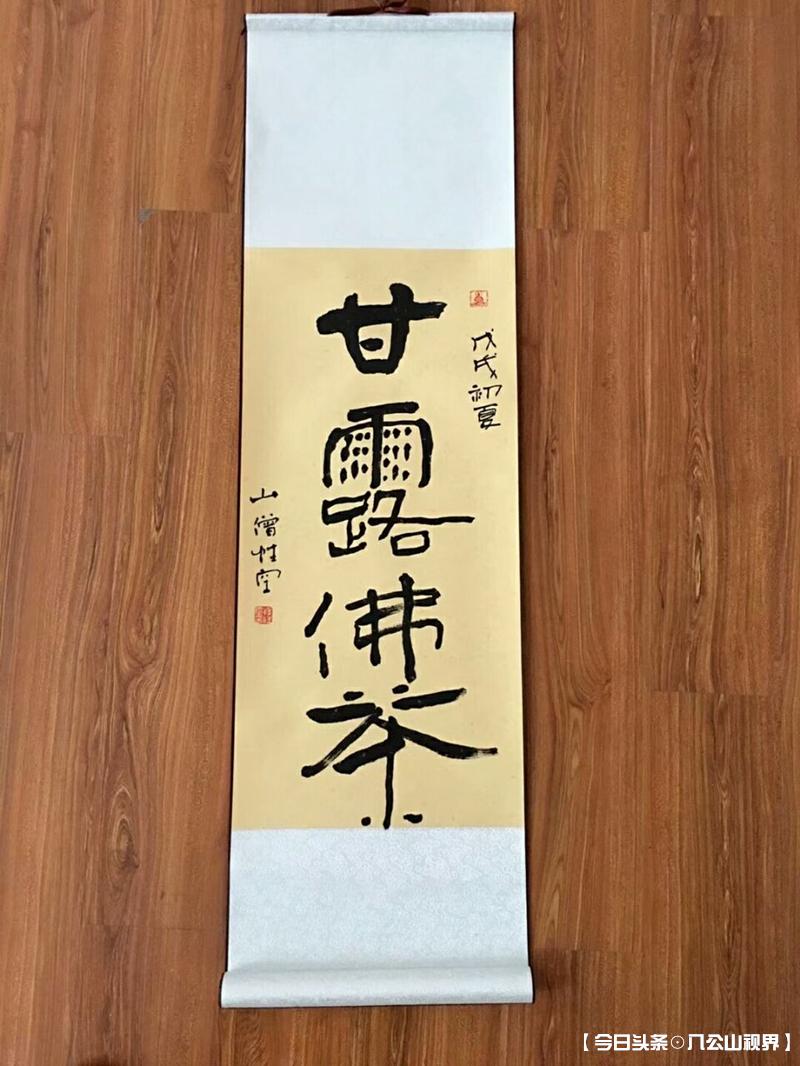 戊戌初夏
甘露佛茶
山僧性空
【今日头条⊙八公山视界】